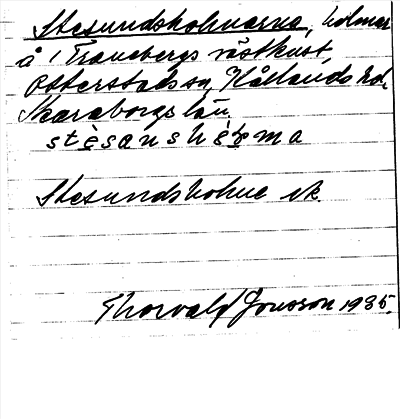 Stesundsholmarna, holmar
å i Tranebergs västkust,
Otterstads sn, Kållands hd.
Skaraborgs län.
stèsanshɷɫma
Stesundsholme ek.
Thorvald Jonsson 1935.